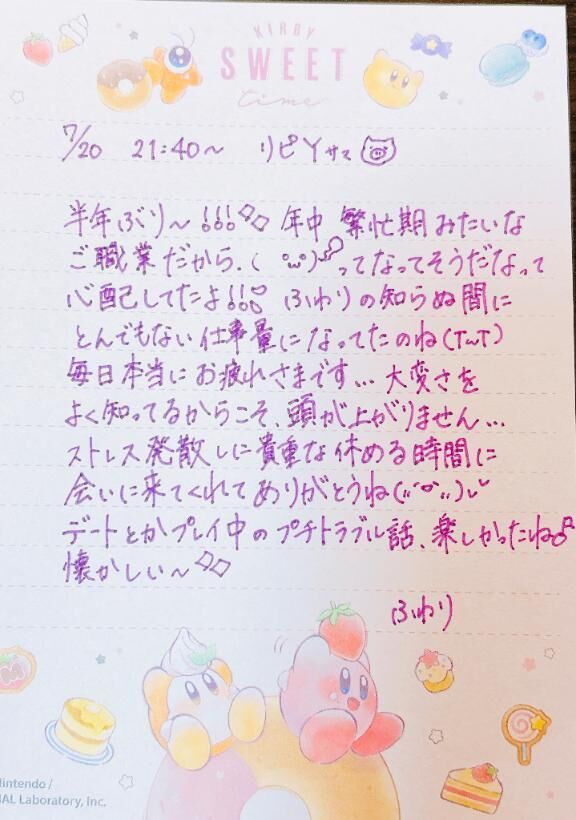 KIRBY
SWEET
time
7/20 21:40〜 リピYサマ
半年ぶり〜!!! 年中 繁忙期みたいな
ご職業だから、( ･ω･)ってなってそうだなって
心配してたよ!!! ふわりの知らぬ間に
とんでもない仕事量になってたのね(T~T)
毎日本当にお疲れさまです… 大変さを
よく知ってるからこそ、頭が上がりません…
ストレス発散しに貴重な休める時間に
会いに来てくれてありがとうね
デートとかプレイ中のプチトラブル話、楽しかったね♪
懐かしい〜
ふわり
Nintendo /
AL Laboratory, Inc.